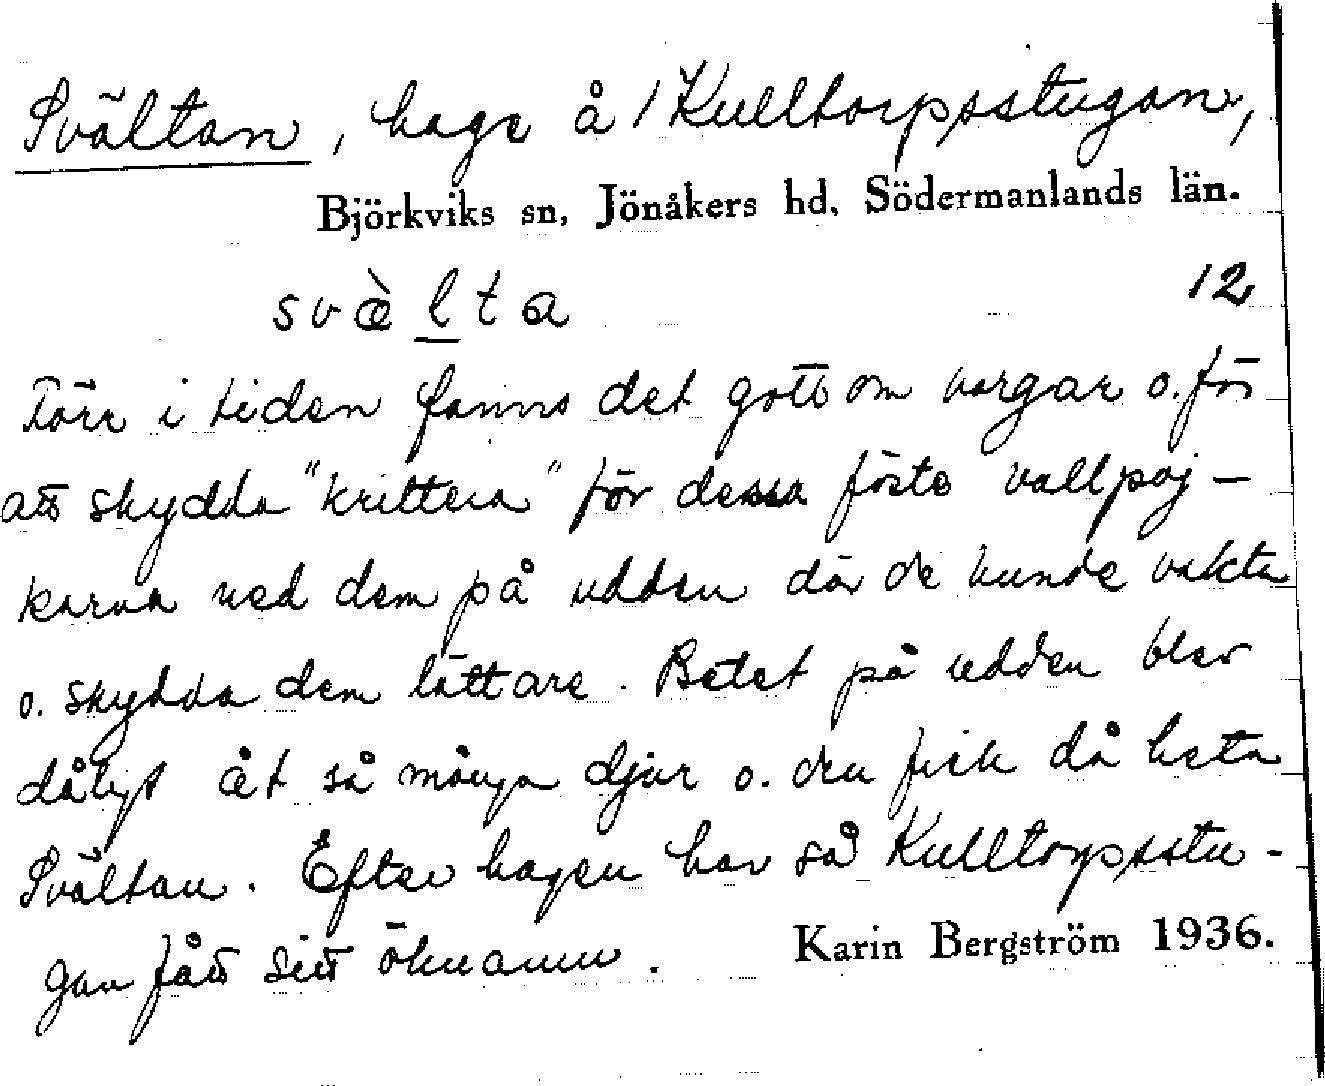 Svältan, hage å 1 Kulltorpsstugan,
Björkviks sn, Jönåkers hd, Södermanlands län.
svæ̀lta 12
Förr i tiden fanns det gott om vargar o. för
att skydda "krittera" för dessa föste vallpoj-
karna ned dem på udden där de kunde vakta
o. skydda dem lättare. Betet på udden blev
dåligt åt så många djur o. den fick då heta
Svältan. Efter hagen har så Kulltorpsstu-
gan fått sitt öknamn. Karin Bergström 1936.